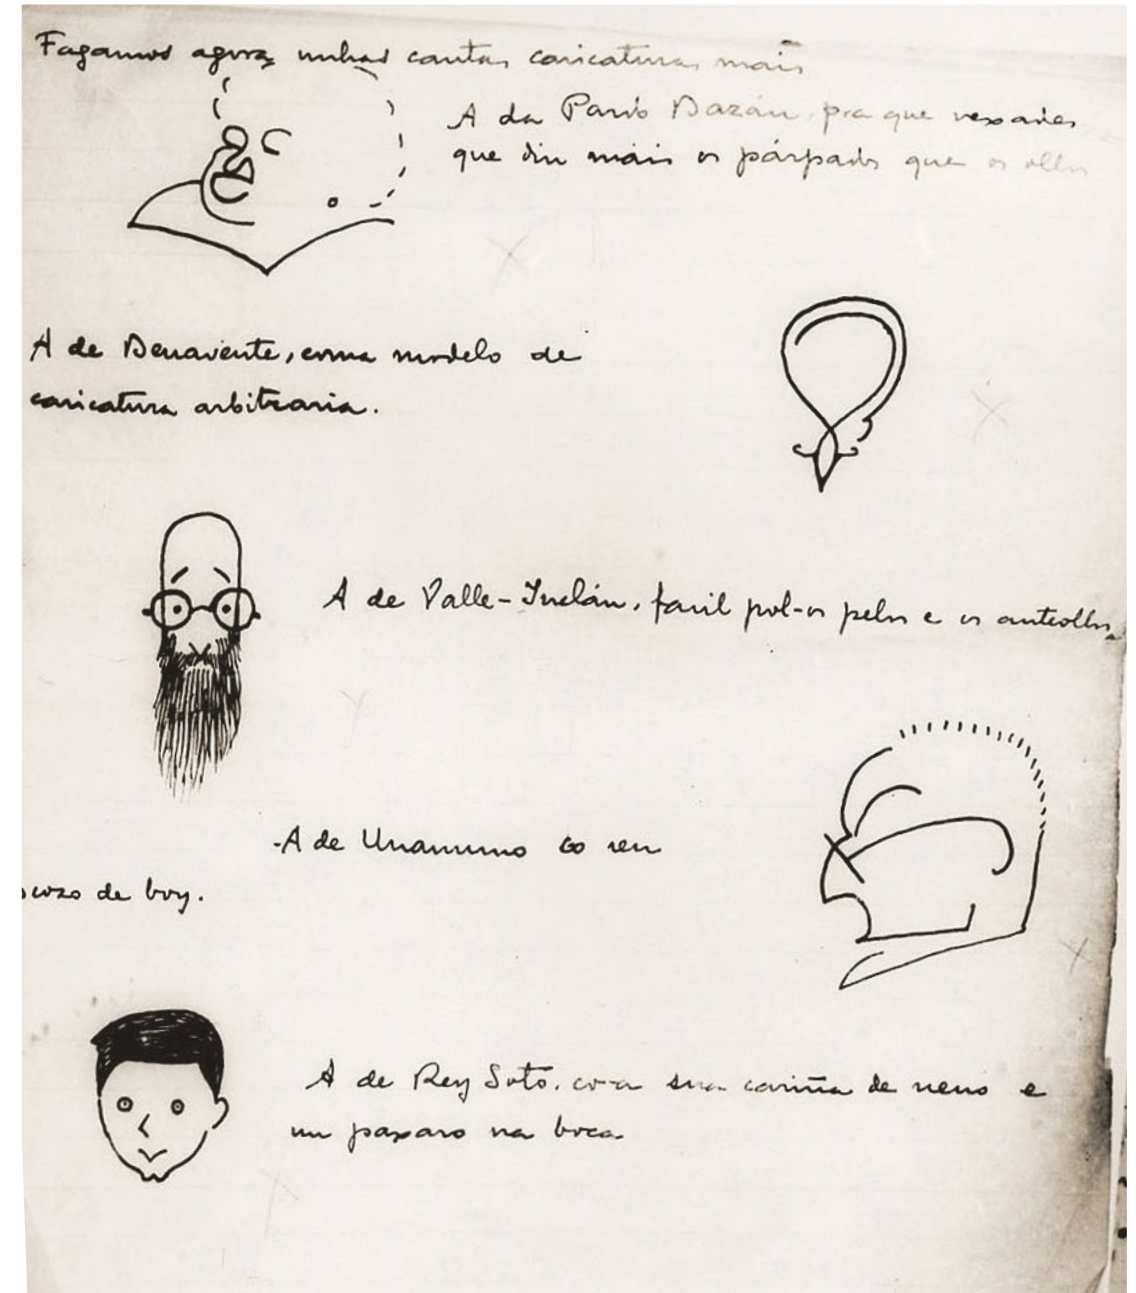 Fagamos agora unhas cantas caricaturas mais
A da Pardo Bazán, pra que vexades
que din mais os párpados que os ollos
A de Benavente, coma modelo de
caricatura arbitraria.
A de Valle-Inclán, facil pol-os pelos e os anteollos.
-A de Unamuno co seu
de boy.
A de Rey Soto, co-a sua cariña de neno e
un paxaro na boca